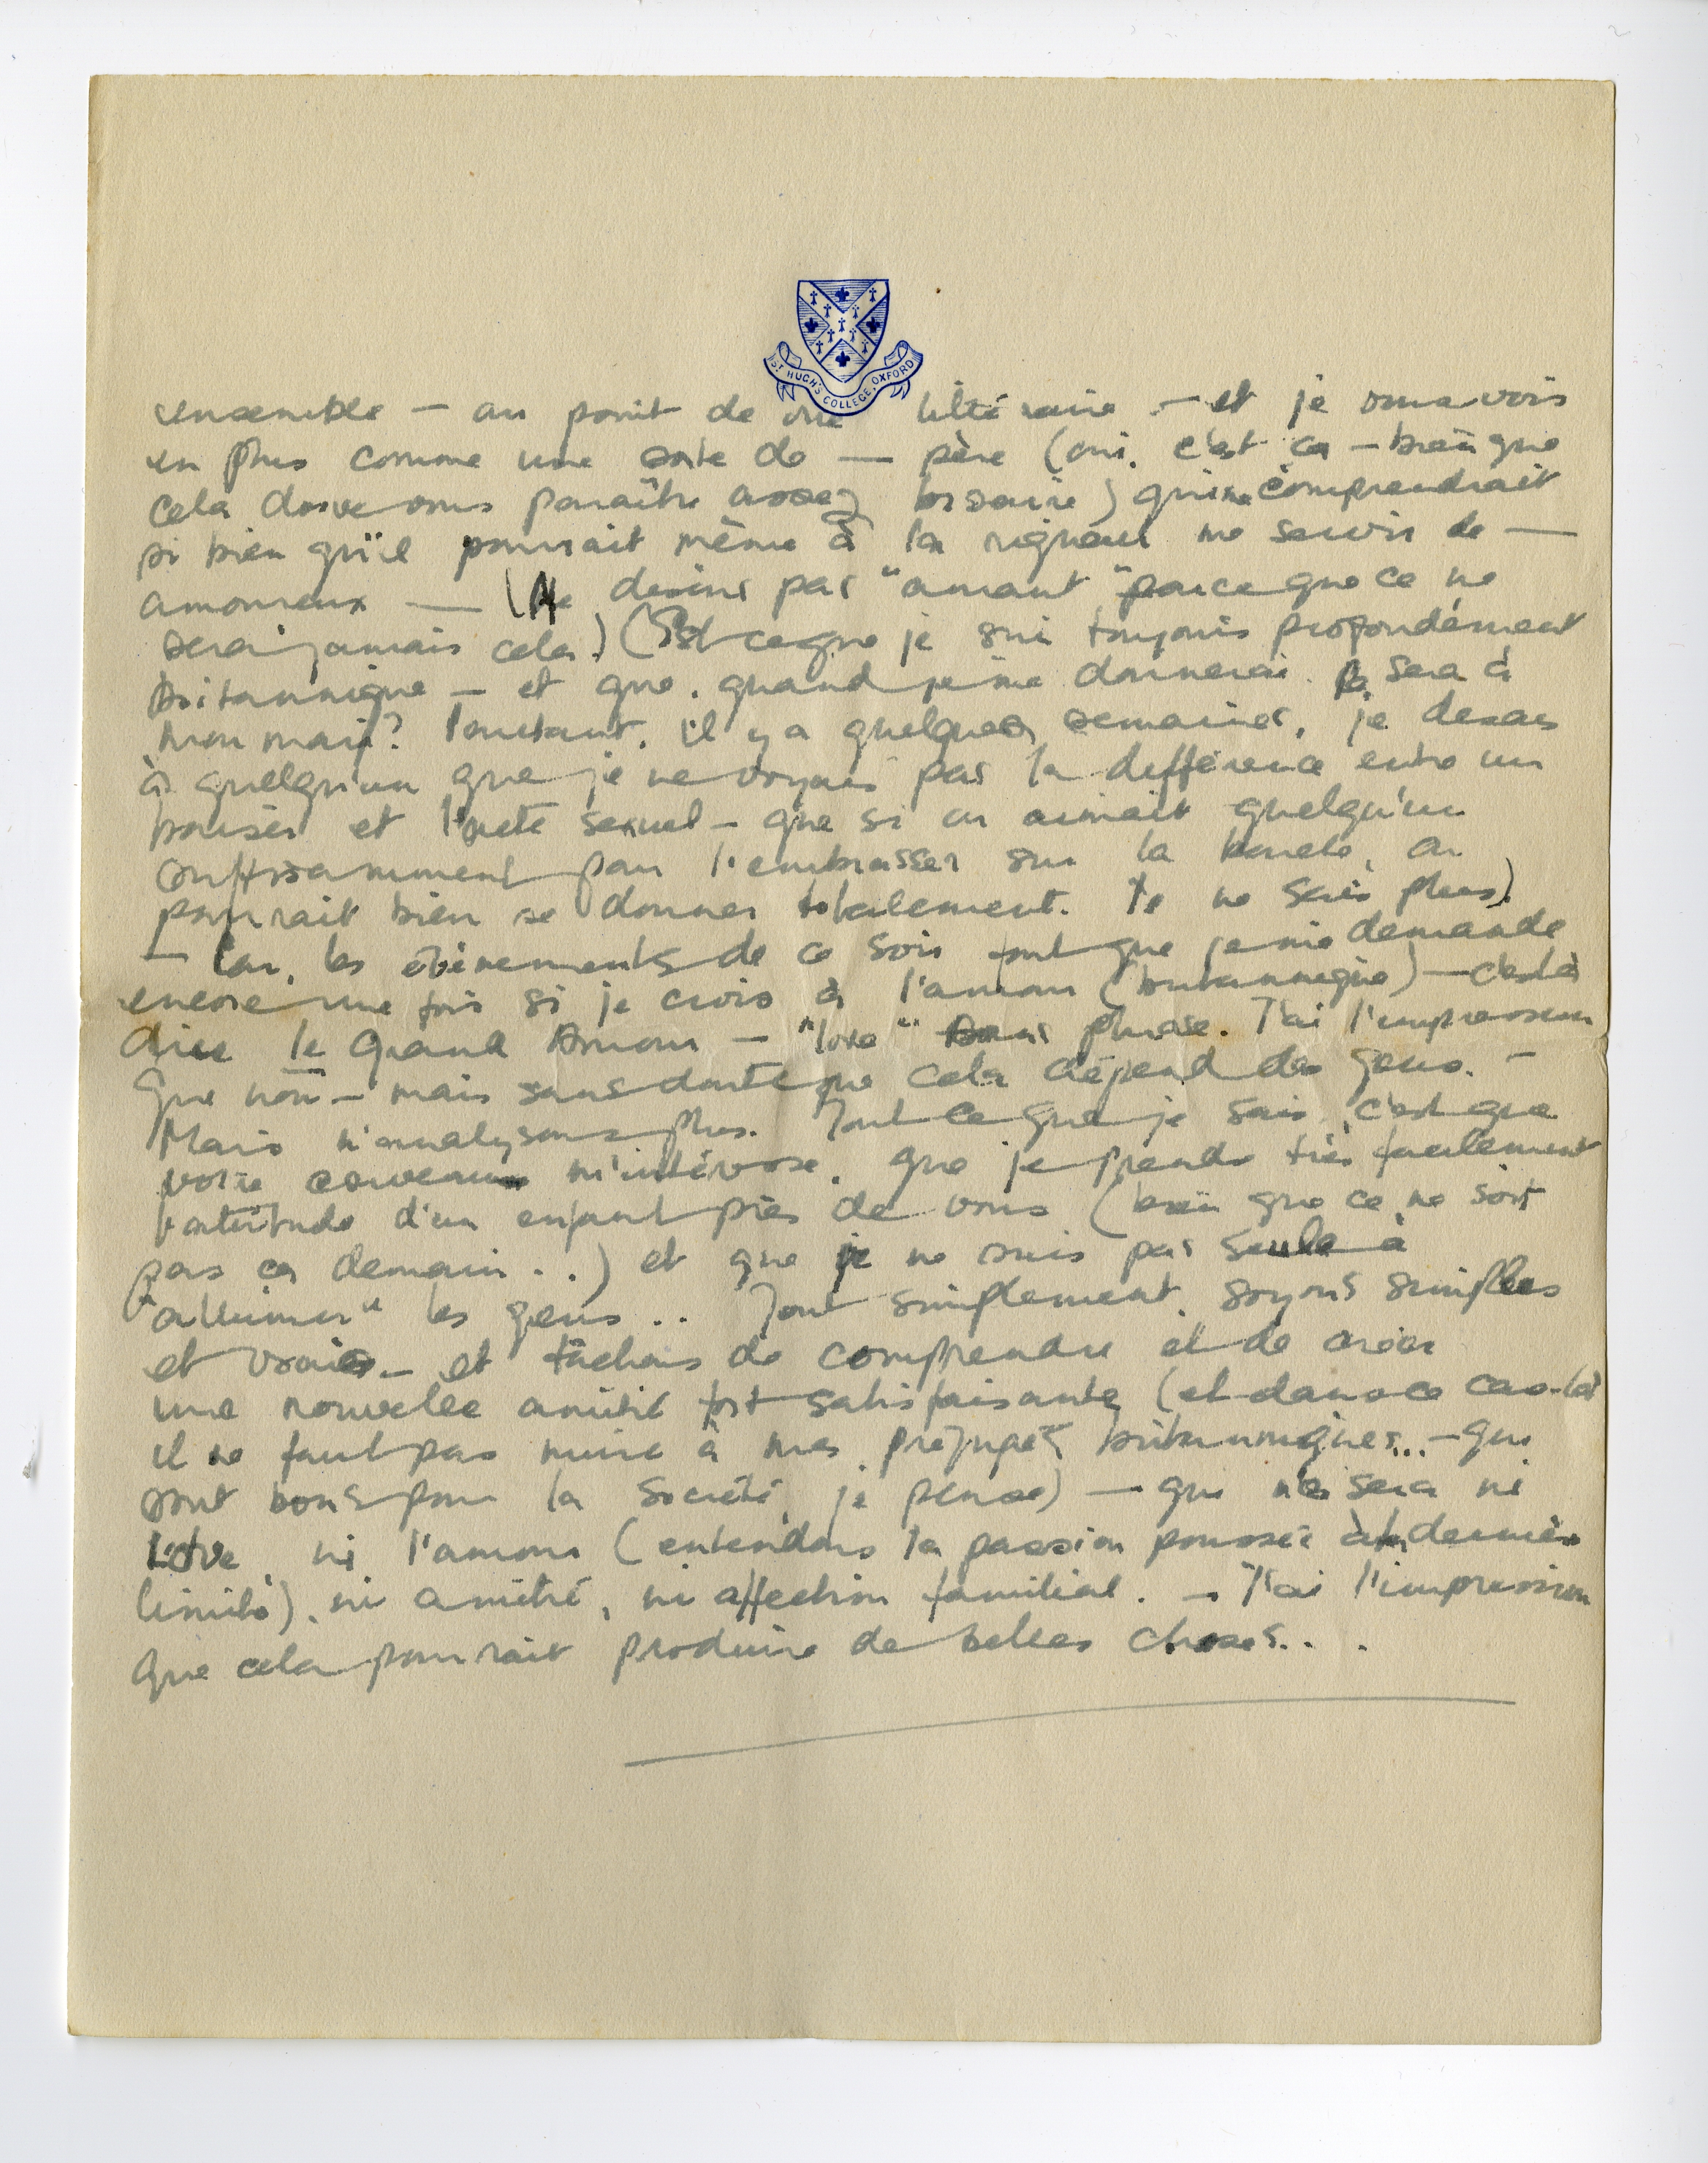 ST HUGH'S COLLEGE, OXFORD
ensemble — au point de vue littéraire — et je vous vois
en plus comme une sorte de — père (oui, c'est ça — bien que
cela doive vous paraître assez bizarre) qui me comprendrait
si bien qu'il pourrait même à la rigueur me servir de —
amoureux — (Ne disons pas "amant" parce que ce ne
sera jamais cela) (Est ce que je suis toujours profondément
britannique — et que, quand je me donnerai, ça sera à
mon mari? Pourtant, il y a quelques semaines, je disais
à quelqu'un que je ne voyais pas la différence entre un
baiser et l'acte sexuel — que si on aimait quelqu'un
suffisamment pour l'embrasser sur la bouche, on
pourrait bien se donner totalement. Je ne sais plus)
— Car, les évènements de ce soir font que je me demande
encore une fois si je crois à l'amour (britannique) — c'est à
dire le Grand Amour — "love" phrase. J'ai l'impression
que non — mais sans doute que cela dépend des gens. —
Mais n'analysons plus. Tout ce que je sais, c'est que
votre cerveau m'intéresse, que je prends très facilement
l'attitude d'un enfant près de vous (bien que ce ne soit
pas ça demain . .) et que je ne suis pas seule à
"allumer" les gens . . Tout simplement, soyons simples
et vrais — et tâchons de comprendre et de créer
une nouvelle amitié fort satisfaisante (et dans ce cas-là
il ne faut pas nuire à mes préjugés britanniques... — qui
sont bons pour la société, je pense) — qui ne sera ni
love, ni l'amour (entendons la passion poussée à la dernière
limite), ni amitié, ni affection familial. — J'ai l'impression
que cela pourrait produire de belles choses. . .